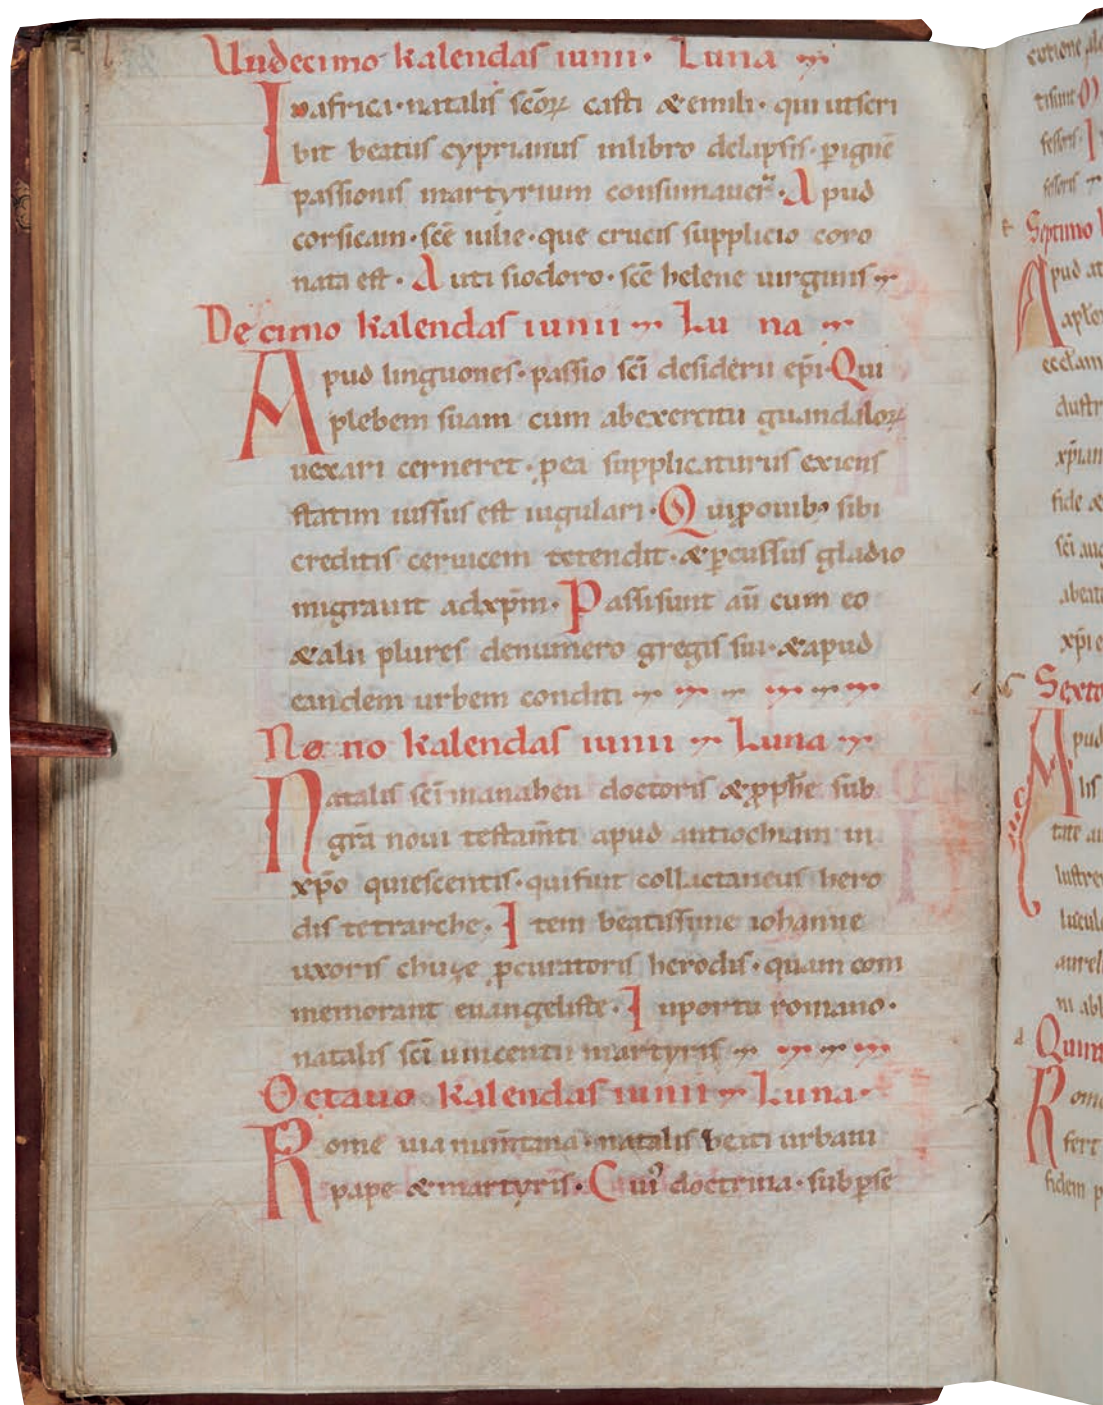 Undecimo kalendas iunii. Luna
In africa. natalis scōꝝ casti & emili. qui ut scri
bit beatus cyprianus in libro de lapsis. ꝑ ignē
passionis martyrium consumauer̄. Apud
corsicam. scē iulie. que crucis supplicio coro
nata est. Autisiodoro. scē helene uirginis
Decimo kalendas iunii Luna
Apud linguones. passio scī desiderii ep̄i. Qui
plebem suam cum ab exercitu guandaloꝝ
uexari cerneret. ꝓ ea supplicaturus exiens
statim iussus est iugulari. Qui ꝓ ouibꝰ sibi
creditis ceruicem tetendit. & ꝑcussus gladio
migrauit ad xp̄m. Passi sunt aū cum eo
& alii plures de numero gregis sui. & apud
eandem urbem conditi
Nono kalendas iunii Luna
Natalis scī manahen doctoris & ꝓph̄e sub
gr̄a noui testam̄ti apud antiochiam in
xp̄o quiescentis. qui fuit collactaneus hero
dis tetrarche. Item beatissime iohanne
uxoris chuze ꝓcuratoris herodis. quam com
memorant euangeliste. In portu romano.
natalis scī uincentii martyris
Octauo kalendas iunii Luna.
Rome uia num̄tana. natalis beati urbani
pape & martyris. Cuiꝰ doctrina. sub ꝑse